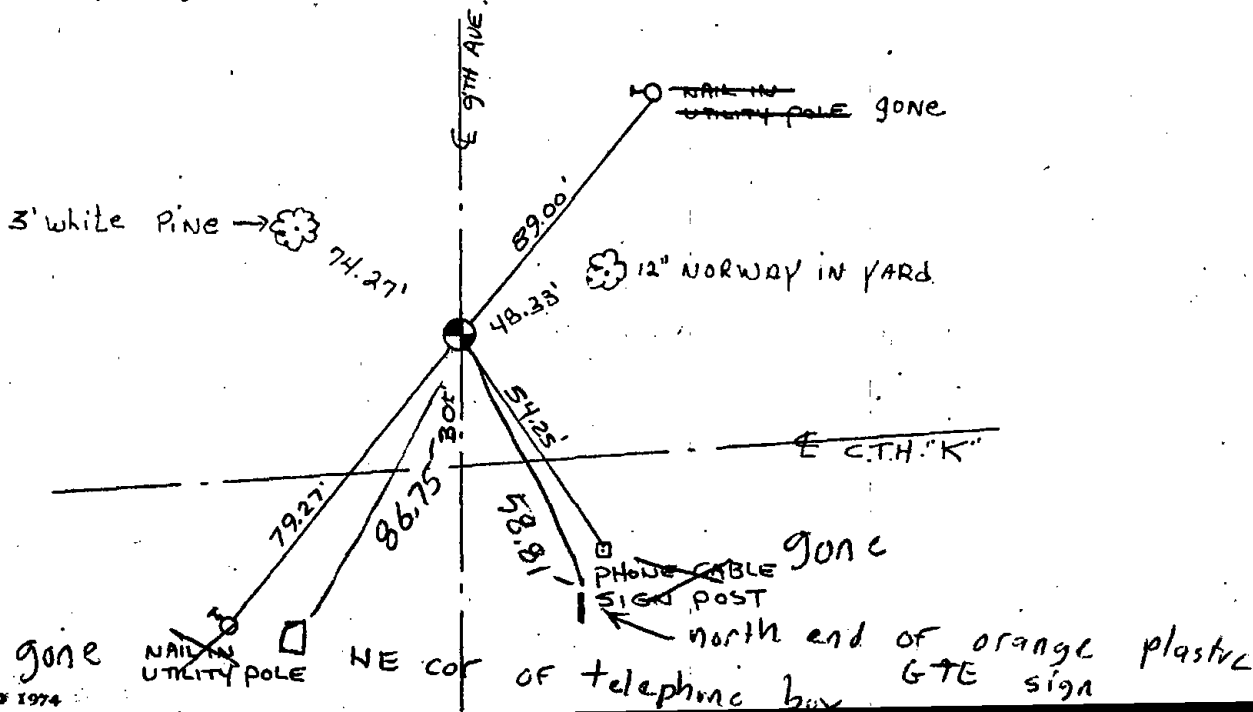 ℄ 9TH AVE.
NAIL IN
UTILITY POLE gone
89.00'
3' white PINE →
74.27'
12" NORWAY IN YARD
48.33'
30±'
54.25'
℄ C.T.H. "K"
79.27'
86.75
58.81
gone
PHONE CABLE
SIGN POST
north end of orange plastic
GTE sign
gone
NAIL IN
UTILITY POLE
NE cor of telephone box
1974